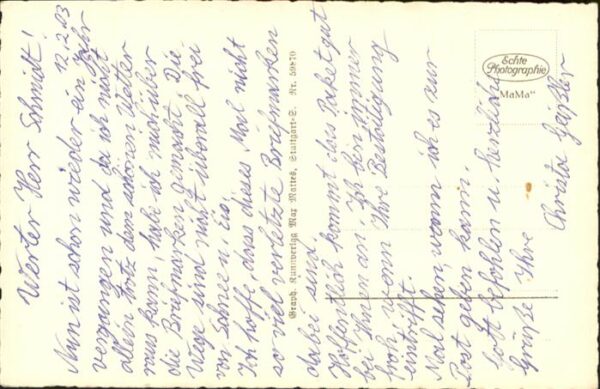 Werter Herr Schmidt!
12.2.03
Nun ist schon wieder ein Jahr
vergangen und da ich nicht
allein trotz dem schönen Wetter
raus kann, habe ich mich über
die Briefmarken gemacht. Die
Wege sind nicht überall frei
von Schnee u. Eis.
Ich hoffe, dass dieses Mal nicht
so viel verletzte Briefmarken
dabei sind.
Hoffentlich kommt das Paket gut
bei Ihnen an. Ich bin immer
froh, wenn Ihre Bestätigung
eintrifft.
Mal sehen wann ich es zur
Post geben kann.
Gott befohlen u. herzliche
Grüße Ihre
Christa Geißler
Graph. Kunstverlag Max Mattes, Stuttgart-S. Nr. 50870
Echte
Photographie
„MaMa“